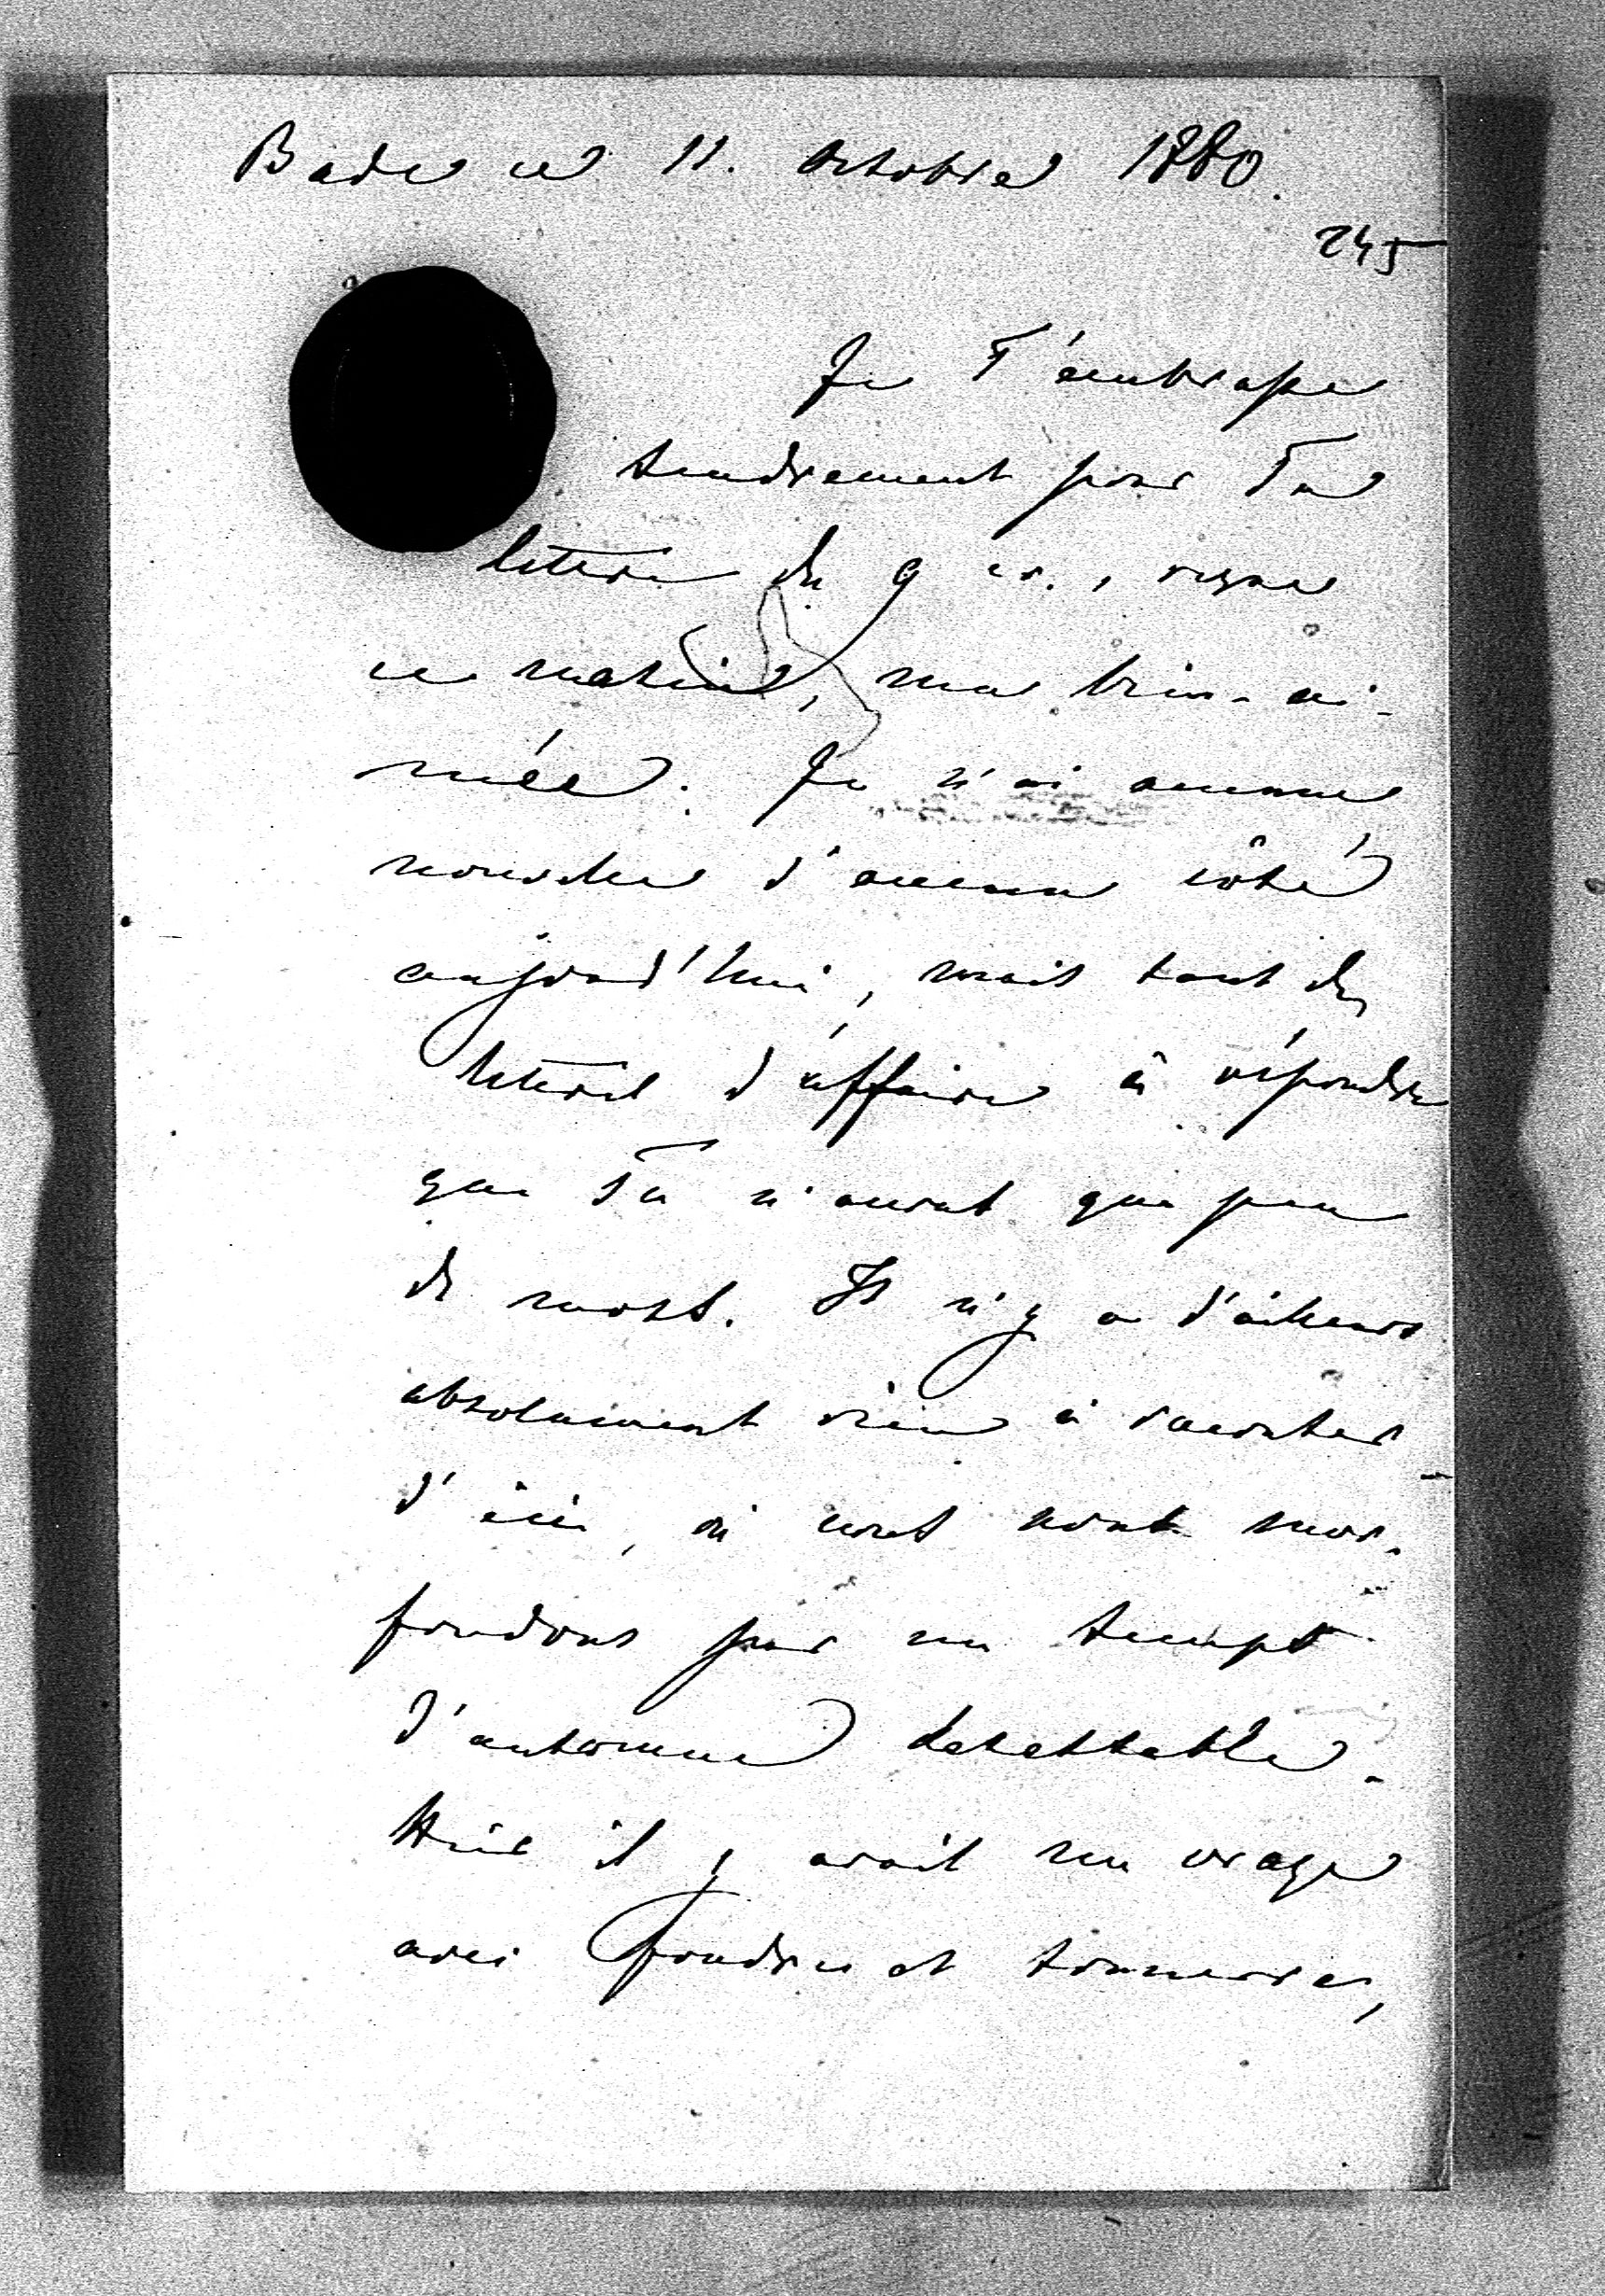 Bade ce 11. Octobre 1880.
245
Je T'embrasse
tendrement pour Ta
lettre du 9 cr., reçue
ce matin, ma bien-ai-
mée. Je n'ai aucune
nouvelle d'aucun côté
aujourd'hui, mais tant de
lettres d'affaire à répondre
que Tu n'auras que peu
de mots. Il n'y a d'ailleurs
absolument rien à raconter
d'ici, où nous nous mor-
fondons par un temps
d'automne detestable.
Hier il y avait un orage
avec foudre et tonnerre,